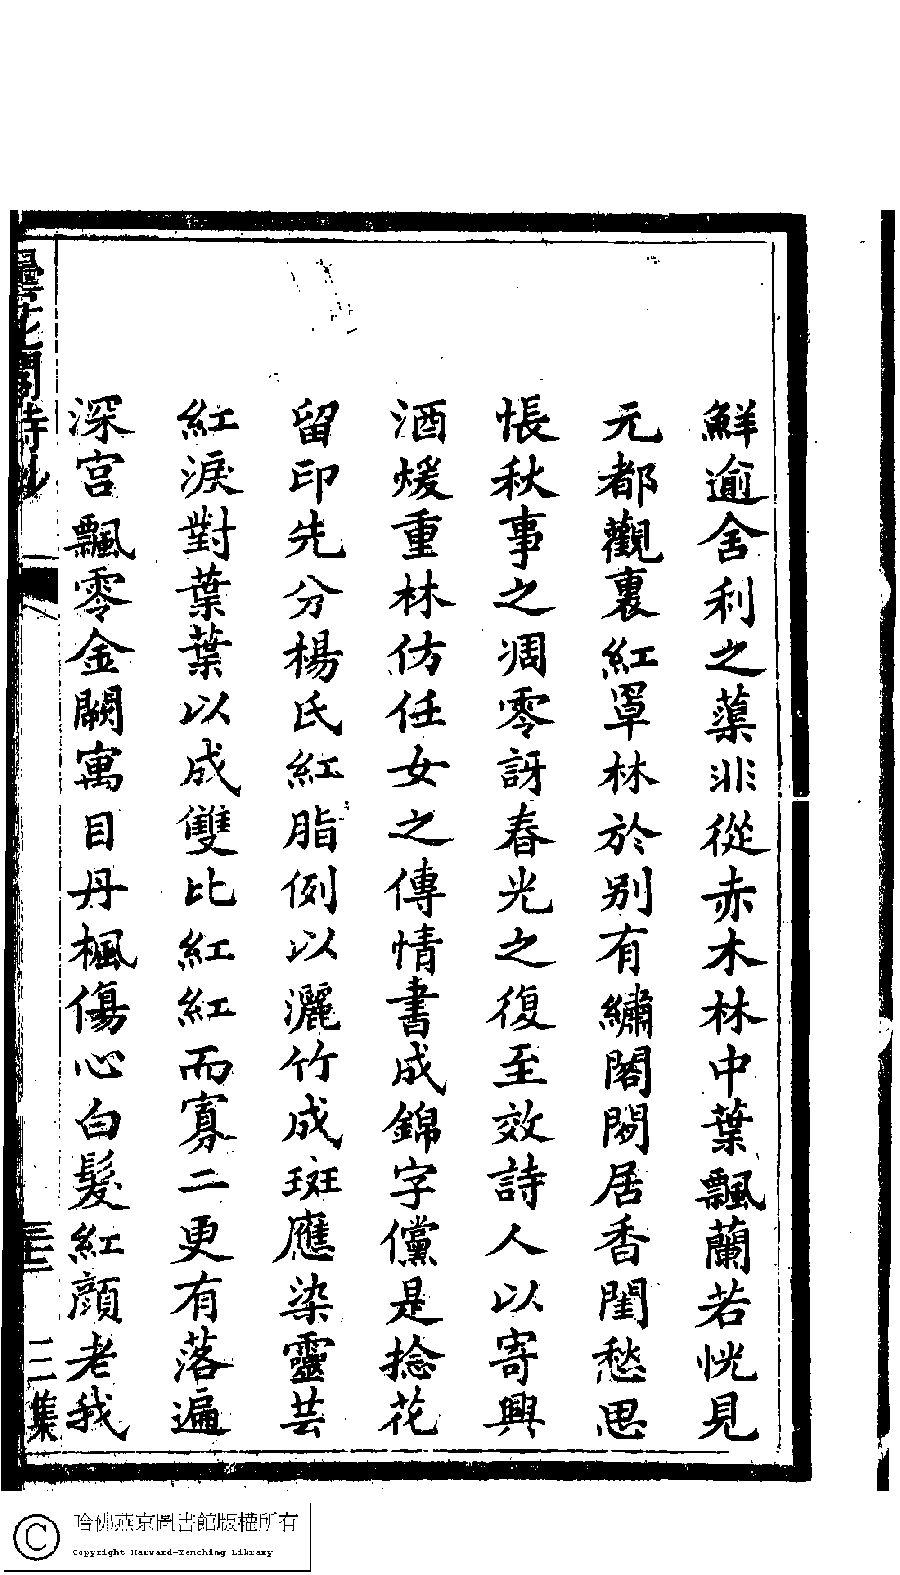 鮮逾舍利之蕖非從赤木林中葉飄蘭若恍見
元都觀裏紅罩林於別有繡閣閑居香閨愁思
悵秋事之凋零訝春光之復至效詩人以寄興
酒煖重林仿任女之傳情書成錦字儻是捻花
留印先分楊氏紅脂例以灑竹成斑應染靈芸
紅淚對葉葉以成雙比紅紅而寡二更有落遍
深宮飄零金闕寓目丹楓傷心白髮紅顏老我
曇花閣詩鈔
三集
哈佛燕京圖書館版權所有
Copyright Harvard-Yenching Library